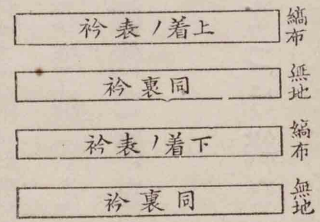 縞布
上着ノ表衿
無地
同裏衿
縞布
下着ノ表衿
無地
同裏衿